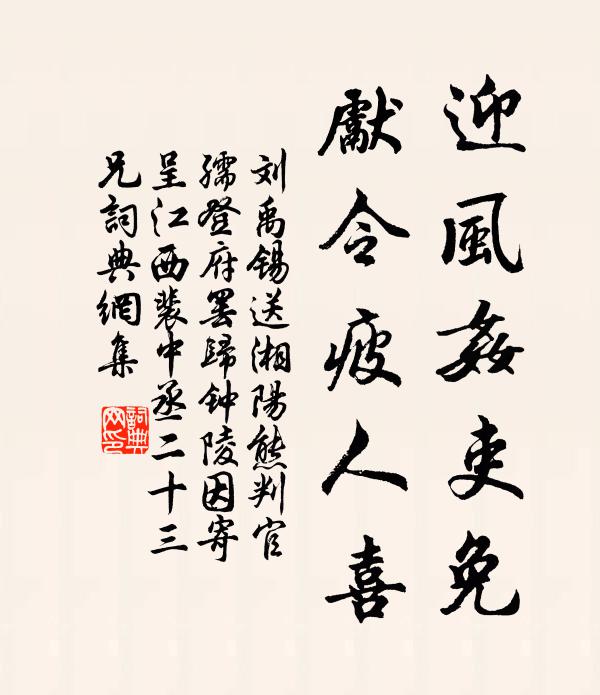 迎風姦吏免
獻令疲人喜
刘禹锡送湘陽熊判官
孺登府罢歸钟陵因寄
呈江西裴中丞二十三
兄詞典網集
詞典
网印